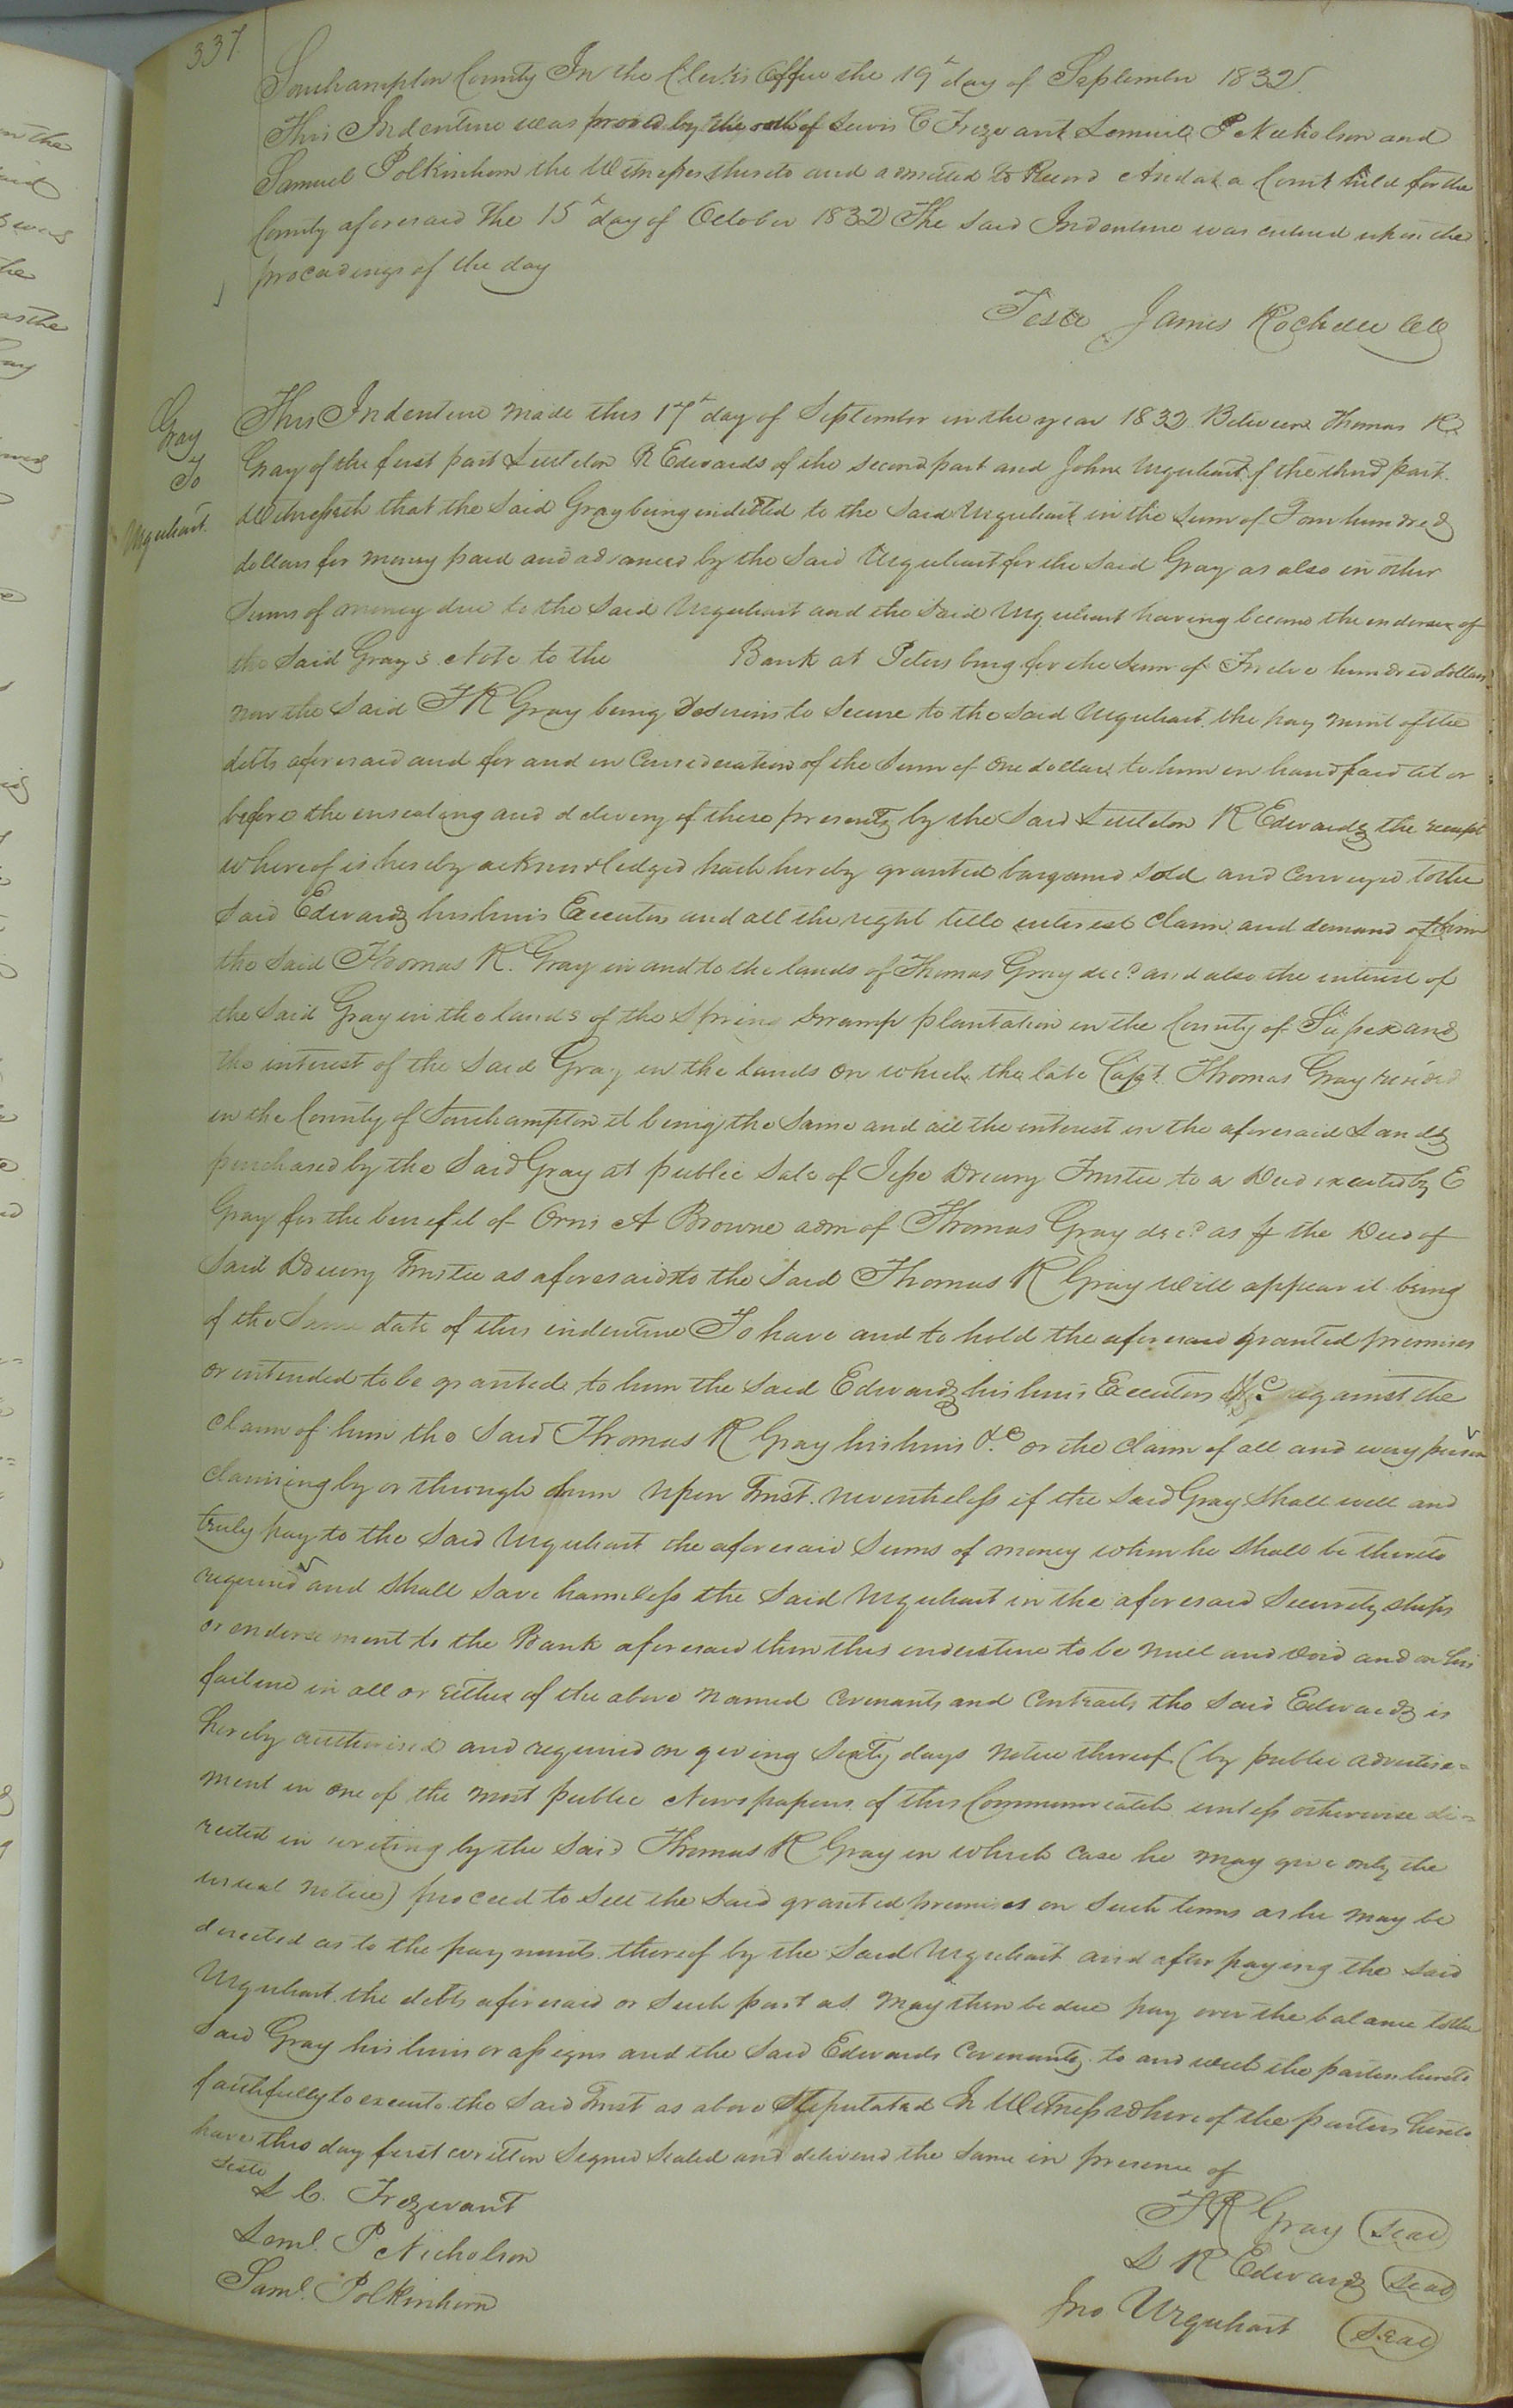 337
Southampton County In the Clerk's Office the 19th day of September 1832.
This Indenture was proved by the oath of Lewis C Trezvant Lemuel P Nicholson and
Samuel Polkinhorn the Witnesses thereto and admitted to Record And at a Court held for the
County aforesaid the 15th day of October 1832 The Said Indenture was entered upon the
proceedings of the day
Teste James Rochelle CC
Gray
To
Urquhart.
This Indenture made this 17th day of September in the year 1832 Between Thomas R
Gray of the first part Littleton R Edwards of the second part and John Urquhart of the third part.
Witnesseth that the Said Gray being indebted to the Said Urquhart in the Sum of Four hundred
dollars for money paid and advanced by the Said Urquhart for the Said Gray as also in other
Sums of money due to the Said Urquhart and the Said Urquhart having become the endorser of
the Said Gray's Note to the Bank at Petersburg for the Sum of Twelve hundred dollars
now the Said T R Gray being desirous to Secure to the Said Urquhart the payment of the
debts aforesaid and for and in Consideration of the Sum of one dollar to him in hand paid at or
before the ensealing and delivery of these presents by the Said Littleton R Edwards the receipt
whereof is hereby acknowledged hath hereby granted bargained sold and conveyed to the
Said Edwards his heirs Executors and all the right title interest claim and demand of him
the Said Thomas R. Gray in and to the lands of Thomas Gray decd and also the interest of
the Said Gray in the lands of the Spring Swamp plantation in the County of Sussex and
the interest of the Said Gray in the lands on which the late Capt. Thomas Gray resided
in the County of Southampton it being the Same and all the interest in the aforesaid Lands
purchased by the Said Gray at public Sale of Jesse Drewry Trustee to a Deed executed by E
Gray for the benefit of Orris A Browne adm of Thomas Gray decd as the Deed of
Said Drewry Trustee as aforesaid to the Said Thomas R Gray will appear it being
of the Same date of this indenture To have and to hold the aforesaid granted premises
or intended to be granted to him the Said Edwards his heirs Executors &c against the
Claim of him the Said Thomas R Gray his heirs &c or the claim of all and every person
claiming by or through him Upon Trust. nevertheless if the Said Gray Shall well and
truly pay to the Said Urquhart the aforesaid Sums of money when he Shall be thereto
required and Shall Save harmless the Said Urquhart in the aforesaid Securityships
or endorsement to the Bank aforesaid then this indenture to be null and void and on his
failure in all or either of the above named Covenants and Contracts the Said Edwards is
hereby authorised and required on giving Sixty days notice thereof (by public advertise=
ment in one of the most public Newspapers of this Commonwealth unless otherwise di=
rected in writing by the Said Thomas R Gray in which case he may give only the
usual notice) proceed to Sell the Said granted premises on Such terms as he may be
directed as to the payments thereof by the Said Urquhart and after paying the Said
Urquhart the debts aforesaid or Such part as may then be due pay over the balance to the
Said Gray his heirs or assigns and the Said Edwards Covenants to and with the parties hereto
faithfully to execute the Said Trust as above Stipulated In Witness whereof the parties hereto
have this day first written Signed Sealed and delivered the Same in presence of
Teste
L C. Trezvant
Leml. P Nicholson
Saml. Polkinhorn
T R Gray (Seal)
L R Edwards (Seal)
Jno Urquhart (Seal)